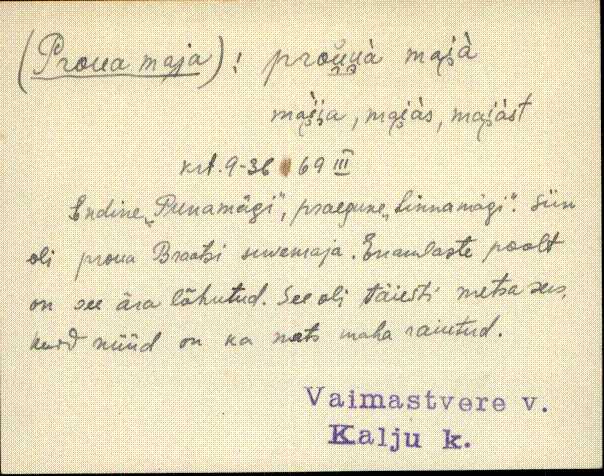 (Proua maja): prou̯u̯à majà
maija, majàs, majàst
krt. 9-36 69 III
Endine „Punamägi", praegune „Linnamägi". Siin
oli proua Braatsi suvemaja. Enamlaste poolt
on see ära lõhutud. See oli täiesti metsa sees,
kuid nüüd on ka mets maha raiutud.
Vaimastvere v.
Kalju k.